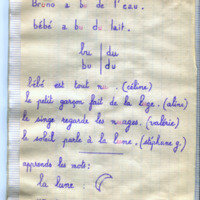 Bruno a bu de l'eau.
bébé a bu du lait.
bu | du
bu | du
bébé est tout nu. (céline)
le petit garçon fait de la luge. (aline)
le singe regarde les nuages. (valérie)
le soleil parle à la lune. (stéphane g.)
apprends les mots:
la lune